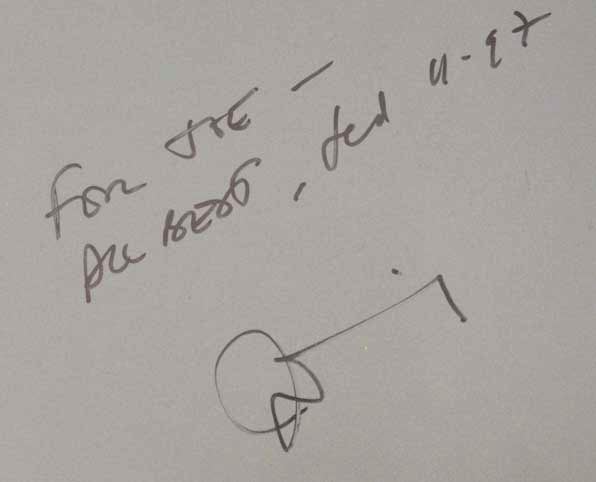 FOR JOE —
ALL BEST, Ted 11-97